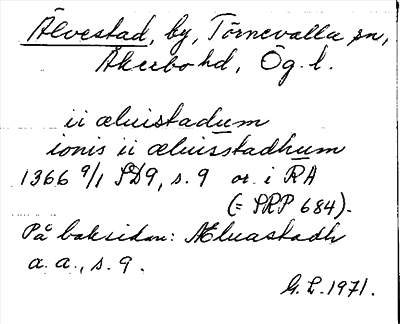 Älvestad, by, Törnevalla sn,
Åkerbo hd, Ög. l.
ii æluistadum
ionis ii æluisstadhum
1366 9/1 SD9, s. 9 or. i RA
(= SRP 684).
På baksidan: Æluastadh
a. a., s. 9.
G. L. 1971.